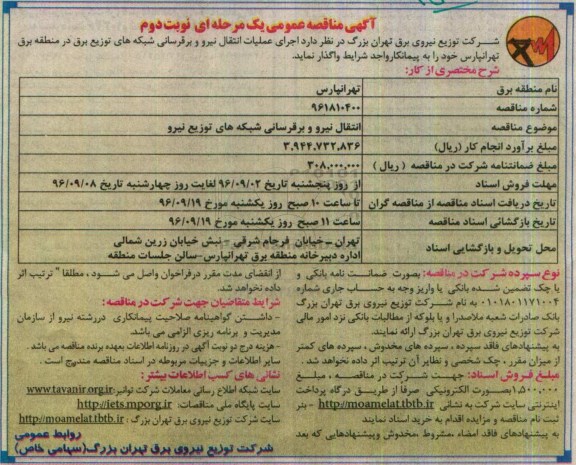 آگهی مناقصه عمومی یک مرحله ای نوبت دوم
شرکت توزیع نیروی برق تهران بزرگ در نظر دارد اجرای عملیات انتقال نیرو و برقرسانی شبکه های توزیع برق در منطقه برق
تهرانپارس خود را به پیمانکارواجد شرایط واگذار نماید.
شرح مختصری از کار:
نام منطقه برق تهرانپارس
شماره مناقصه ۹۶۱۸۱۰۴۰۰
موضوع مناقصه انتقال نیرو و برقرسانی شبکه های توزیع نیرو
مبلغ برآورد انجام کار (ریال) ۳،۹۴۴،۷۳۲،۸۳۶
مبلغ ضمانتنامه شرکت در مناقصه ( ریال ) ۳۰۸،۰۰۰،۰۰۰
مهلت فروش اسناد از روز پنجشنبه تاریخ ۹۶/۰۹/۰۲ لغایت روز چهارشنبه تاریخ ۹۶/۰۹/۰۸
تاریخ دریافت اسناد مناقصه از مناقصه گران تا ساعت ۱۰ صبح روز یکشنبه مورخ ۹۶/۰۹/۱۹
تاریخ بازگشائی اسناد مناقصه ساعت ۱۱ صبح روز یکشنبه مورخ ۹۶/۰۹/۱۹
محل تحویل و بازگشایی اسناد تهران – خیابان فرجام شرقی – نبش خیابان زرین شمالی
اداره دبیرخانه منطقه برق تهرانپارس-سالن جلسات منطقه
نوع سپرده شرکت در مناقصه: بصورت ضمانت نامه بانکی و
یا چک تضمین شده بانکی یا واریز وجه به حساب جاری شماره
۰۱۰۱۸۰۱۱۷۱۰۰۴ به نام شرکت توزیع نیروی برق تهران بزرگ
بانک صادرات شعبه ملاصدرا و یا بلوکه از مطالبات بانکی نزد امور مالی
شرکت توزیع نیروی برق تهران بزرگ ارائه نمایند.
به پیشنهادهای فاقد سپرده ، سپرده های مخدوش ، سپرده های کمتر
از میزان مقرر ، چک شخصی و نظایر آن ترتیب اثر داده نخواهد شد .
مبلغ فروش اسناد: جهت شرکت در مناقصه ، مبلغ
۱،۵۰۰،۰۰۰بصورت الکترونیکی صرفاً از طریق درگاه پرداخت
اینترنتی سایت شرکت به نشانی http://moamelat.tbtb.ir - بتر
ثبت نام مناقصه و مزایده اقدام به خرید اسناد نمایند
به پیشنهادهای فاقد امضاء ،مشروط ،مخدوش وپیشنهادهایی که بعد
از انقضای مدت مقرر درفراخوان واصل می شود ، مطلقا" ترتیب اثر
داده نخواهد شد.
شرایط متقاضیان جهت شرکت در مناقصه:
- داشتن گواهینامه صلاحیت پیمانکاری دررشته نیرو از سازمان
مدیریت و برنامه ریزی الزامی می باشد.
- هزینه درج دو نوبت آگهی در روزنامه اطلاعات بعهده برنده مناقصه می باشد
سایر اطلاعات و جزییات مربوطه در اسناد مناقصه مندرج است .
نشانی های کسب اطلاعات بیشتر:
سایت شبکه اطلاع رسانی معاملات شرکت توانیر:www.tavanir.org.ir
سایت پایگاه ملی مناقصات: http://iets.mporg.ir
سایت شرکت توزیع نیروی برق تهران بزرگ : http://moamelat.tbtb.ir
روابط عمومی
شرکت توزیع نیروی برق تهران بزرگ(سهامی خاص)